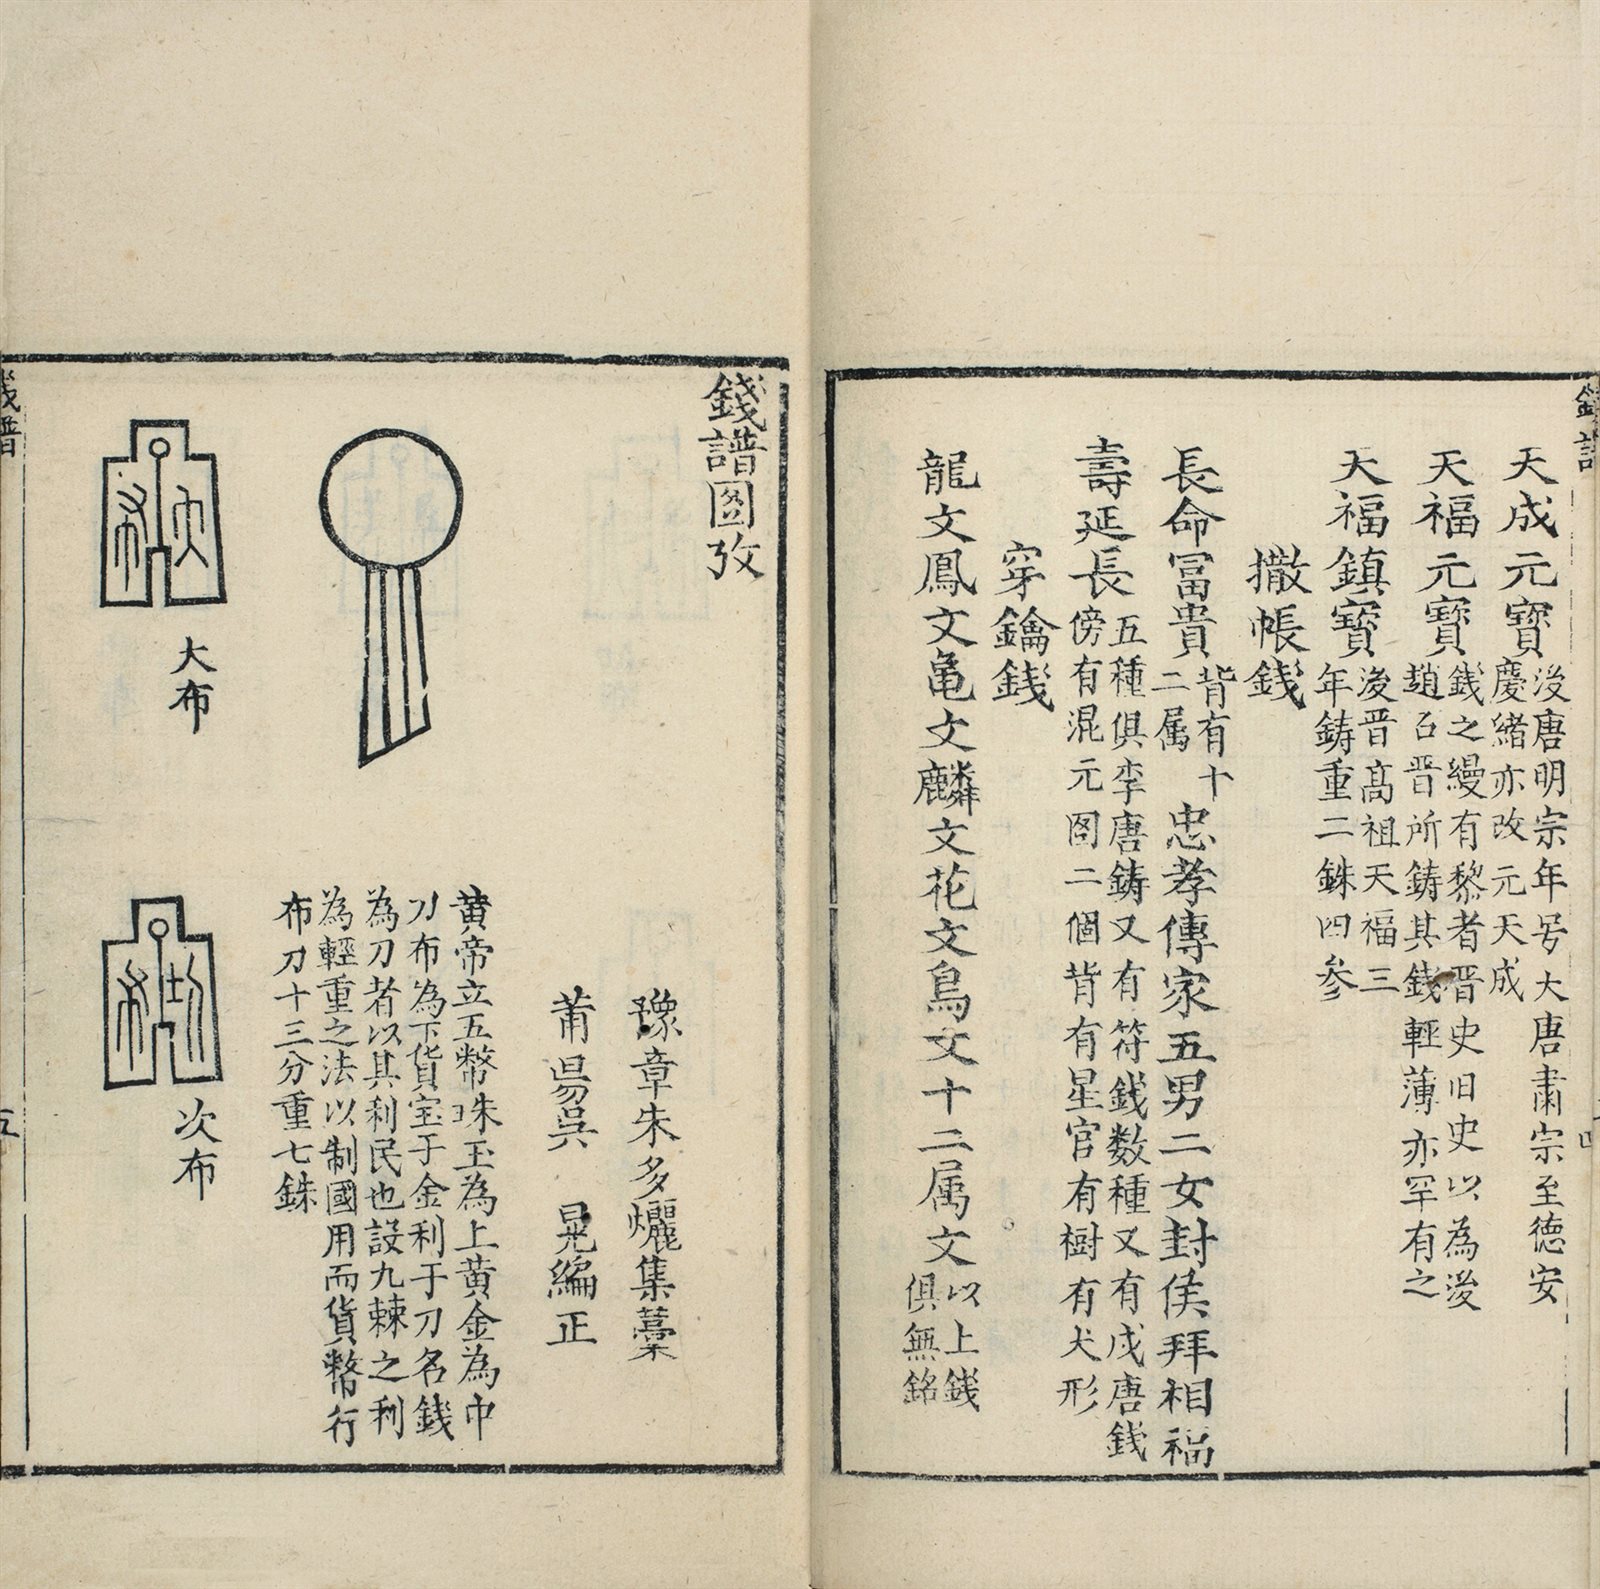 天成元寳後唐明宗年号大唐肅宗至德安
慶緒亦改元天成
天福元寳錢之縵有黎者晋史旧史以為後
趙石晋所鋳其錢輕薄亦罕有之
天福鎮寳後晋髙祖天福三
年鋳重二銖四参
撒帳錢
長命冨貴背有十二属忠孝傳家五男二女封侯拜相福
壽延長五種俱李唐鋳又有符錢数種又有戍唐錢
傍有混元图二個背有星官有樹有犬形
穿鑰錢
龍文鳳文亀文麟文花文鳥文十二属文以上錢
俱無銘
錢譜圖攷
豫章朱多㸐集藁
莆昜吳 晃編正
黄帝立五幣珠玉為上黄金為中
刀布為下貨宝于金利于刀名錢
為刀者以其利民也設九棘之利
為輕重之法以制國用而貨幣行
布刀十三分重七銖
大布
次布
錢譜
五